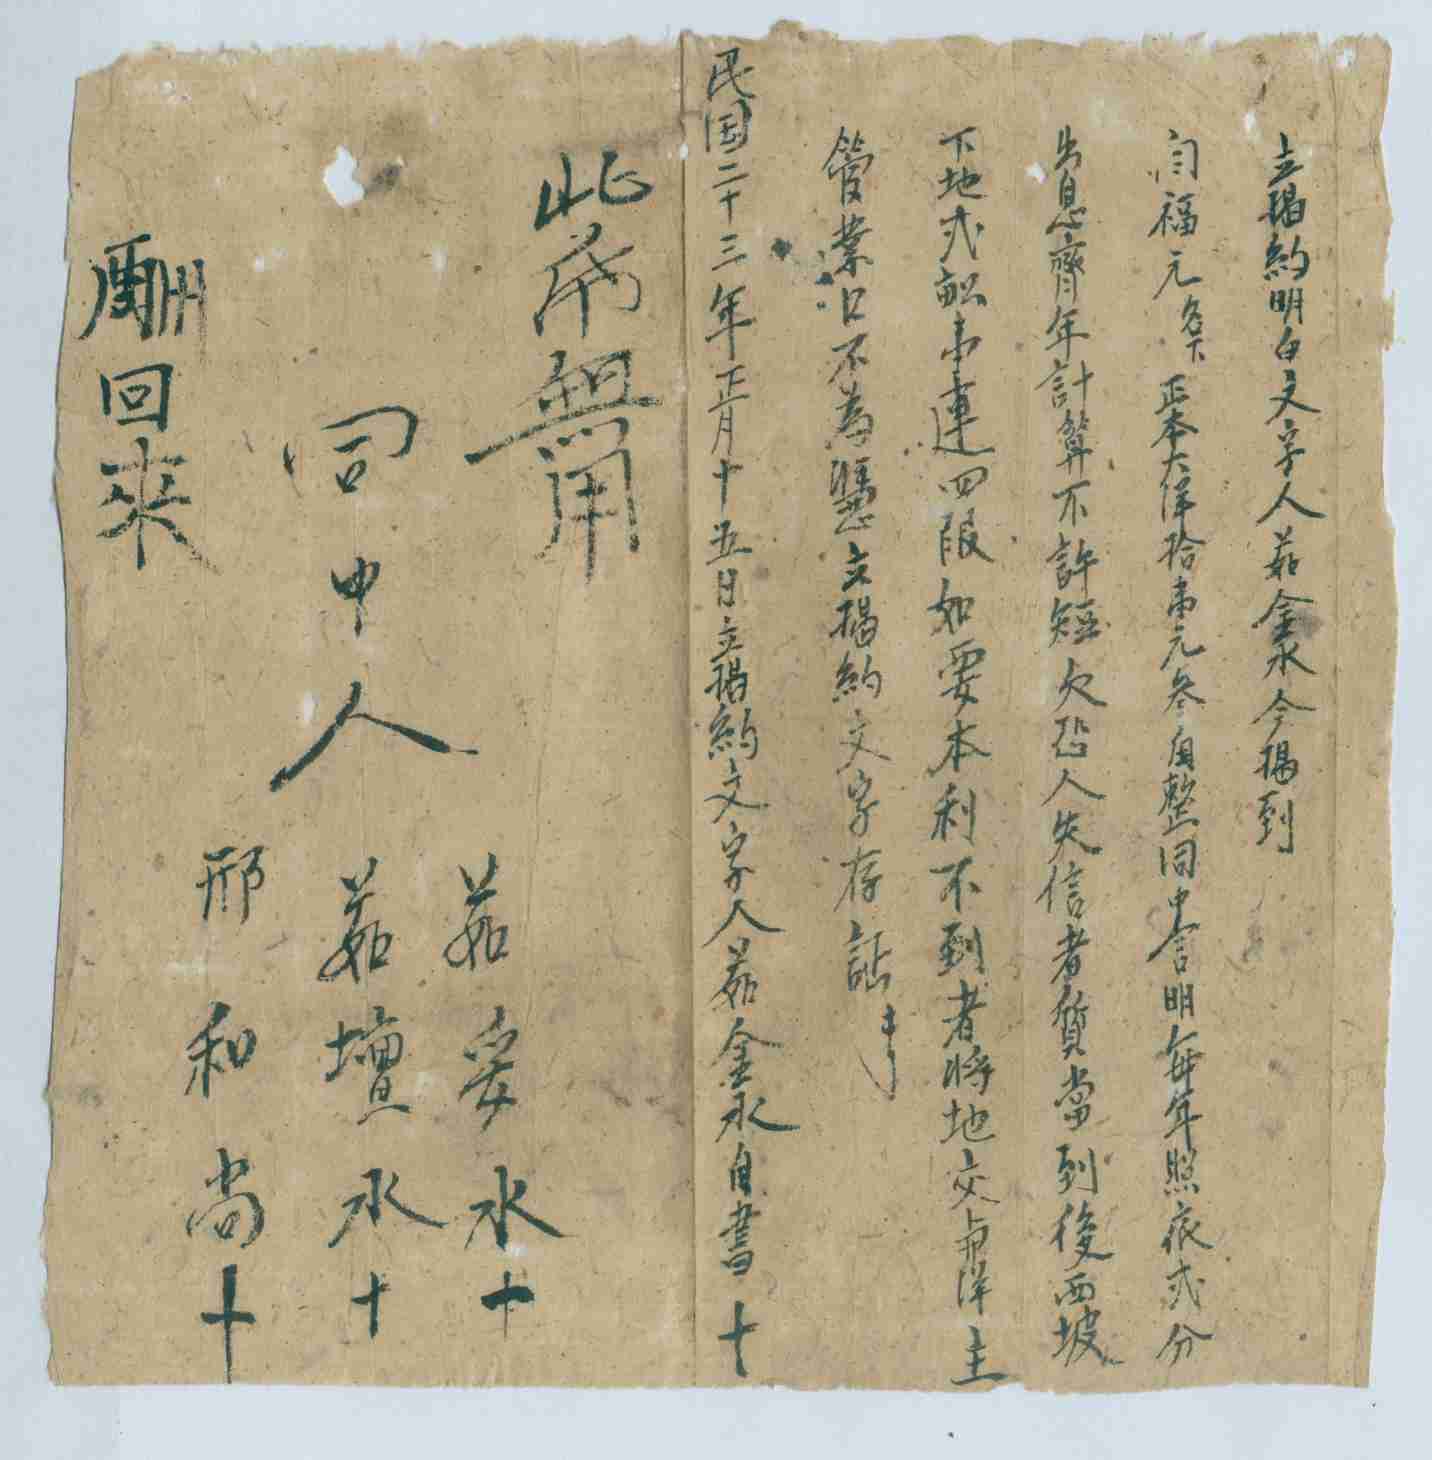 立揭約明白文字人茹金水今揭到
閆福元名下正本大洋拾壹元叁角整同中言明每年照依弍分
出息齊年計算不許短欠恐人失信者質當到後西坡
下地弍畝東連四限如要本利不到者將地交与洋主
管業口不為憑立揭約文字存証
民国二十三年正月十五日立揭約文字人茹金水自書十
此帋無用
茹妥水十
同中人 茹壇水十
邢和尚十
酬回來